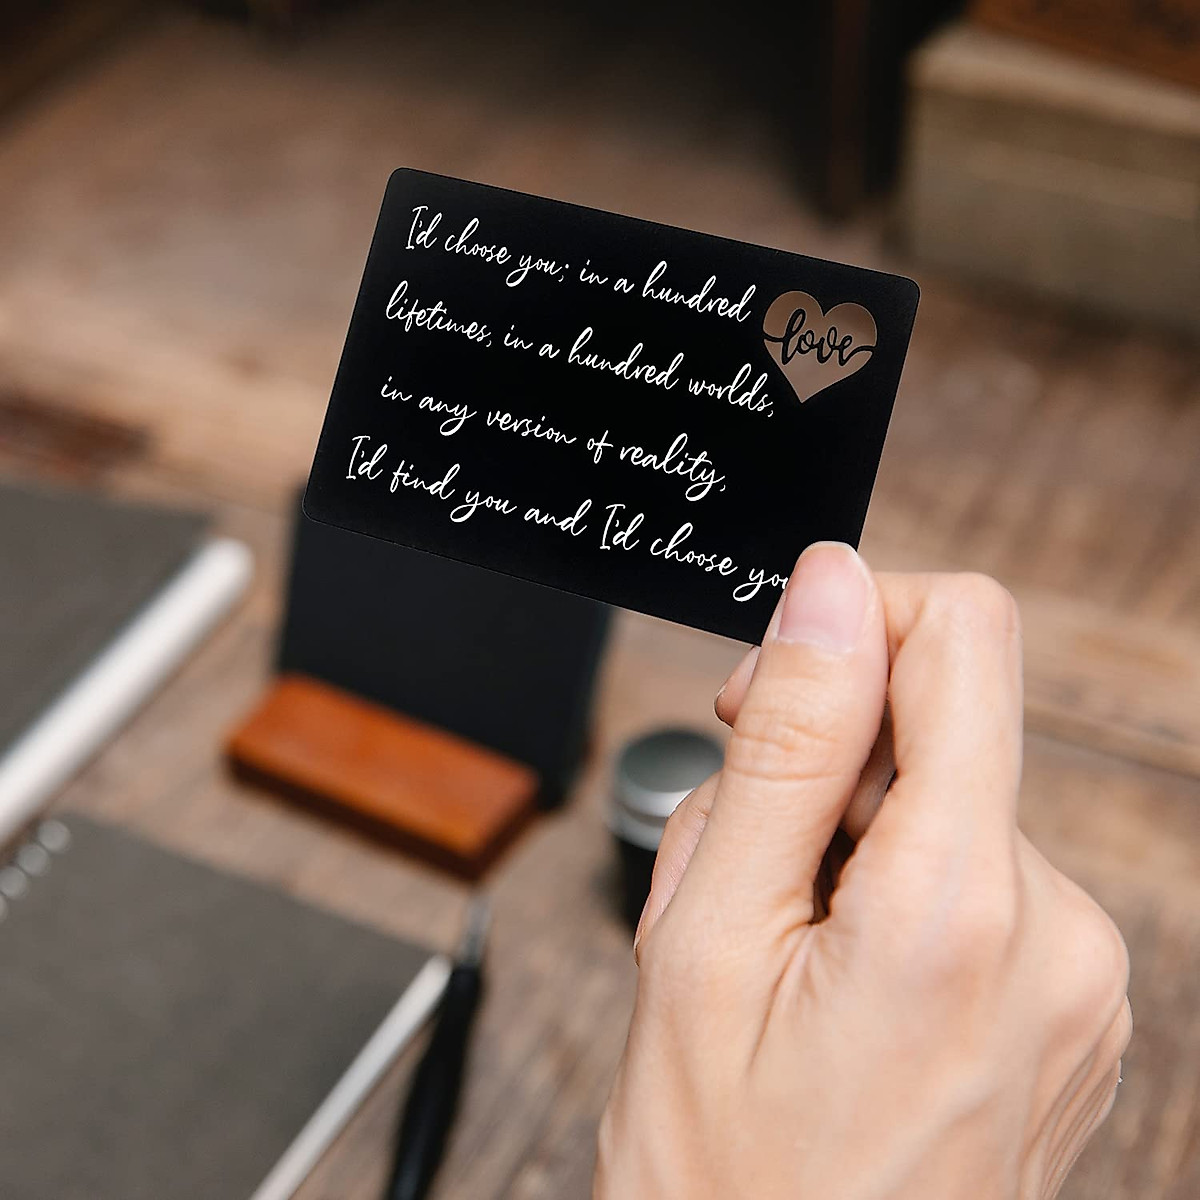 I'd choose you; in a hundred
lifetimes, in a hundred worlds,
in any version of reality,
I'd find you and I'd choose you
love